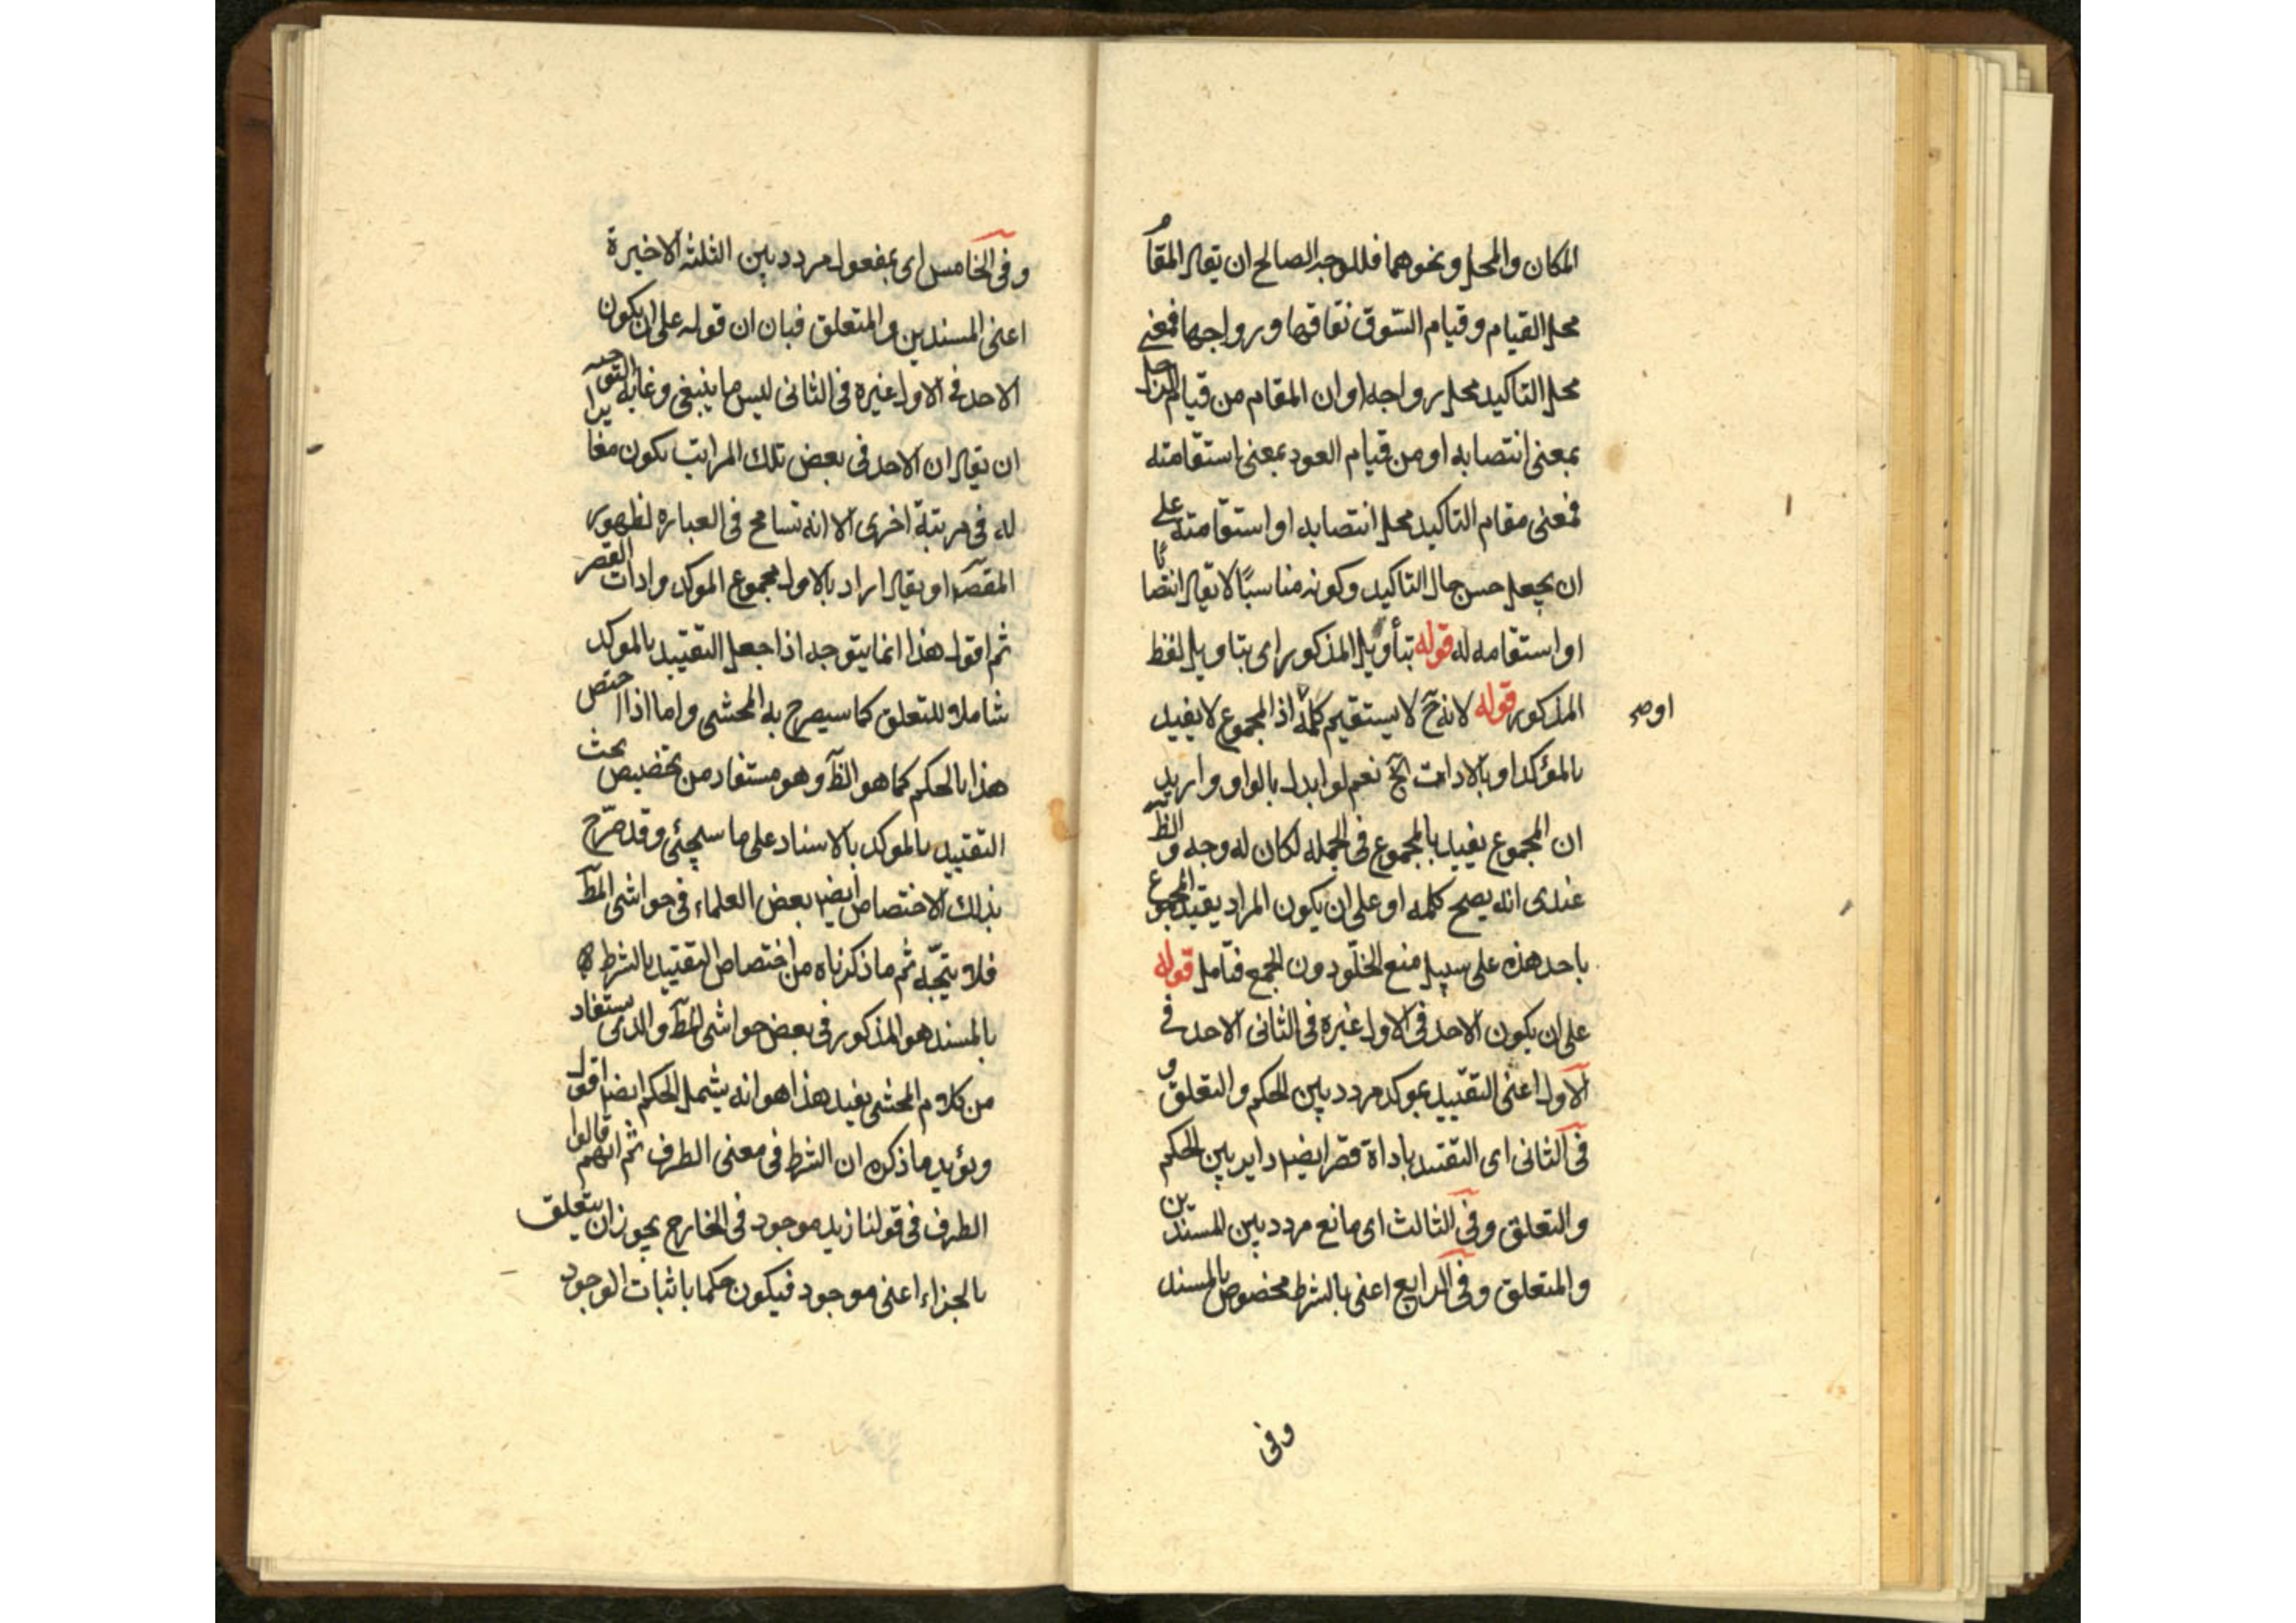 المكان والمحل ونحوهما فللوجه الصالح ان يقال المقام
محل القيام وقيام السّوق نفاقها ورواجها فمعنى
محل التاكيد محل رواجه او ان المقام من قيام الرجل
بمعنى انتصابه او من قيام العود بمعنى استقامته
فمعنى مقام التاكيد محل انتصابه او استقامته على
ان يجعل حسن حال التاكيد وكونه مناسبًا لا يقال انتصابا
او استقامه له قوله بتأويل المذكور اى بتاويل لفظ
المذكور قوله لانه ح لا يستقيم كلمة اذ المجموع لا يفيد
اوصح
بالمؤكد او بالادات الخ نعم لو ابدل بالواو واريد
ان المجموع يفيد بالمجموع فى الجمله لكان له وجه والظ
عندى انه يصح كلمه او على ان يكون المراد يقيد المجموع
باحد هذه على سبيل منع الخلّو دون الجمع فتامل قوله
على ان يكون الاحد فى الاول غيره فى الثانى الاحد فى
الاول اعنى التقييد بموكد مردد بين الحكم والتعلق و
فى الثانى اى التقييد باداة قصر ايضا داير بين الحكم
والتعلق وفى الثالث اى مانع مردد بين المسندين
والمتعلق وفى الرابع اعنى بالشرط مخصوص بالمسند
وفى
وفى الخامس اى بمفعول مردد بين الثلثه الاخيرة
اعنى المسندين والمتعلق فبان ان قوله على ان يكون
الاحد فى الاول غيره فى الثانى ليس ما ينبغى وغاية التوجيه
ان يقال ان الاحد فى بعض تلك المراتب يكون مغايرا
له فى مرتبة اخرى الا انه تسامح فى العباره لظهور
المقصد او يقال اراد بالاول مجموع الموكد وادات القصر
ثم اقول هذا انما يتوجه اذا جعل التقييد بالموكد
شاملا للتعلق كما سيصرح به المحشى واما اذا اختص
هذا بالحكم كما هو الظ وهو مستفاد من تخصيص بحث
التقييد بالموكد بالاسناد على ما سيجئى وقد صّرح
بذلك الاختصاص ايضا بعض العلماء فى حواشى المط
فلا يتجّه ثم ما ذكرناه من اختصاص التقييد بالشرط
بالمسند هو المذكور فى بعض حواشى المط والذى يستفاد
من كلام المحشى بعيد هذا هو انه يشمل الحكم ايضا اقول
ويؤيد ما ذكره ان الشرط فى معنى الظرف ثم انهم قالوا
الظرف فى قولنا زيد موجود فى الخارج يجوز ان يتعلق
بالجزاء اعنى موجود فيكون حكما باثبات الوجود